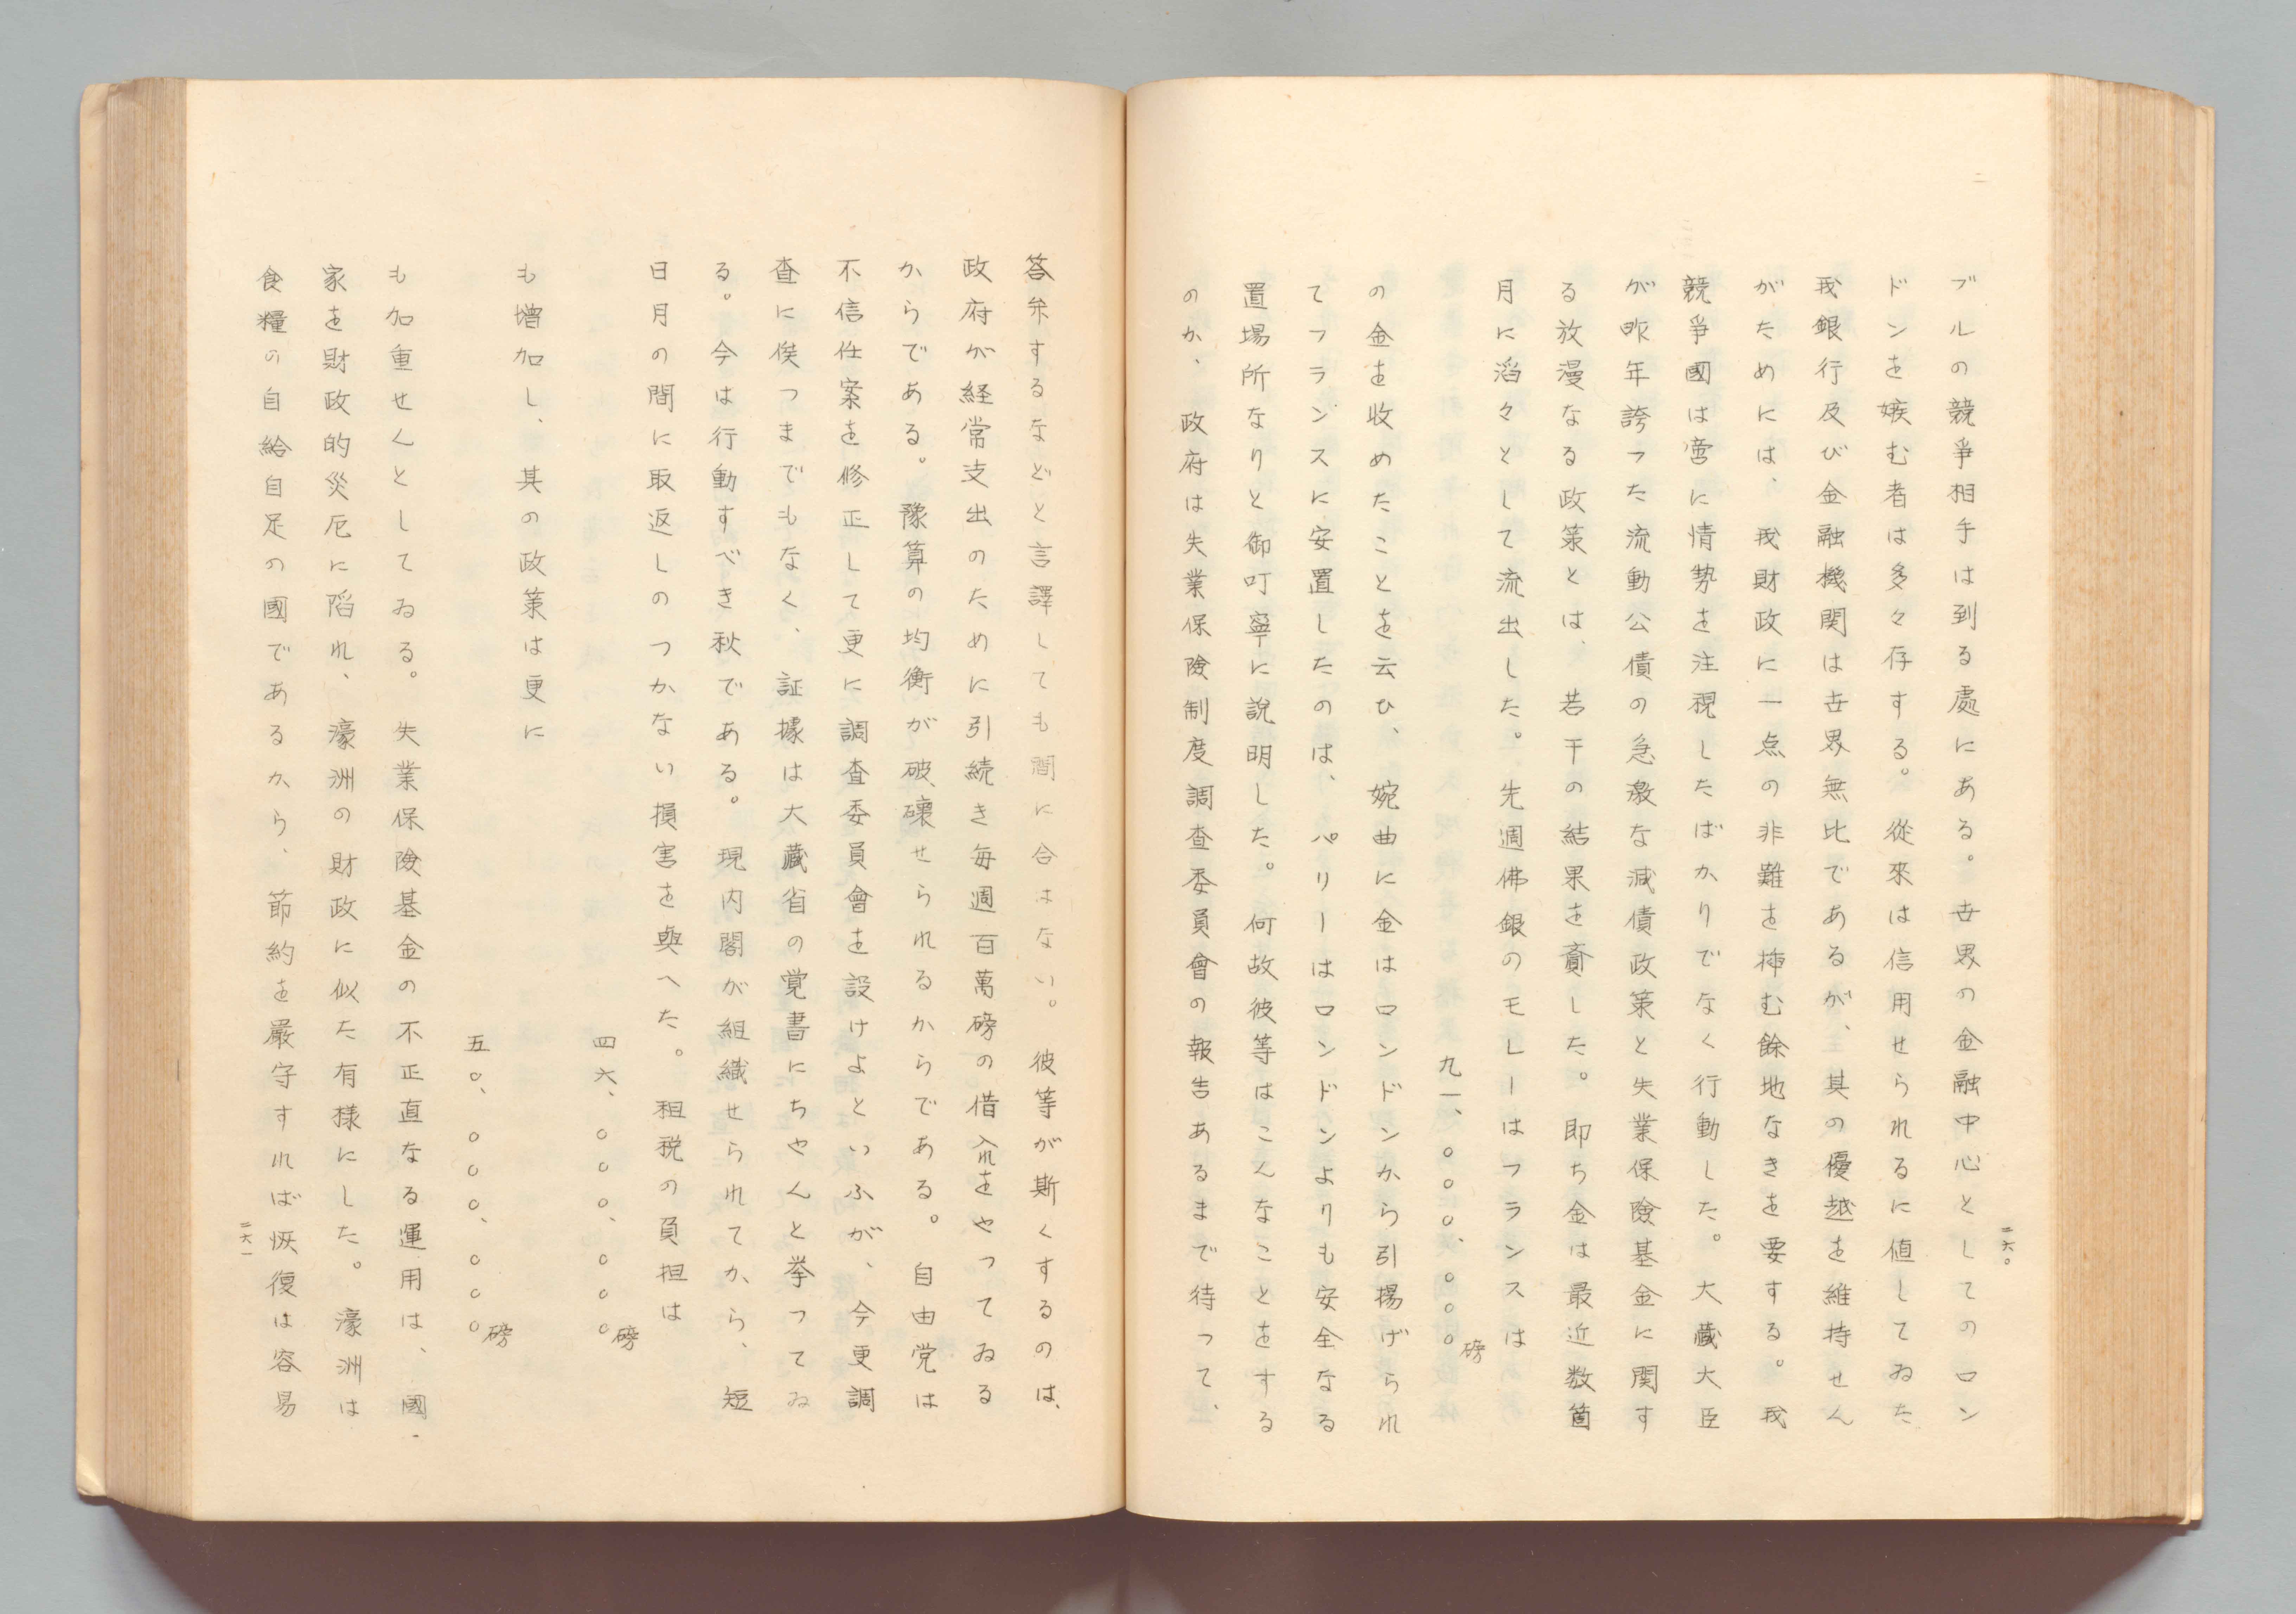 二六〇
ブルの競爭相手は到る處にある。世界の金融中心としてのロン
ドンを嫉む者は多々存する。從來は信用せられるに値してゐた
我銀行及び金融機関は世界無比であるが、其の優越を維持せん
がためには、我財政に一点の非難を挿む餘地なきを要する。我
競爭國は啻に情勢を注視したばかりでなく行動した。大藏大臣
が昨年誇った流動公債の急激な減債政策と失業保險基金に関す
る放漫なる政策とは、若干の結果を齎した。即ち金は最近数箇
月に滔々として流出した。先週佛銀のモレーはフランスは
九一、〇〇〇、〇〇〇磅
の金を收めたことを云ひ、婉曲に金はロンドンから引揚げられ
てフランスに安置したのは、パリーはロンドンよりも安全なる
置場所なりと御叮寧に說明した。何故彼等はこんなことをする
のか、政府は失業保險制度調査委員會の報告あるまで待って、
答弁するなどと言譯しても間に合はない。彼等が斯くするのは、
政府が経常支出のために引続き毎週百萬磅の借入れをやってゐる
からである。豫算の均衡が破壞せられるからである。自由党は
不信任案を修正して更に調査委員會を設けよといふが、今更調
查に俟つまでもなく、証據は大藏省の覚書にちやんと挙ってゐ
る。今は行動すべき秋である。現内閣が組織せられてから、短
日月の間に取返しのつかない損害を與へた。租税の負担は
四六、〇〇〇、〇〇〇磅
も増加し、其の政策は更に
五〇、〇〇〇、〇〇〇磅
も加重せんとしてゐる。失業保險基金の不正直なる運用は、國
家を財政的災厄に陷れ、濠洲の財政に似た有様にした。濠洲は
食糧の自給自足の國であるから、節約を嚴守すれば恢復は容易
二六一